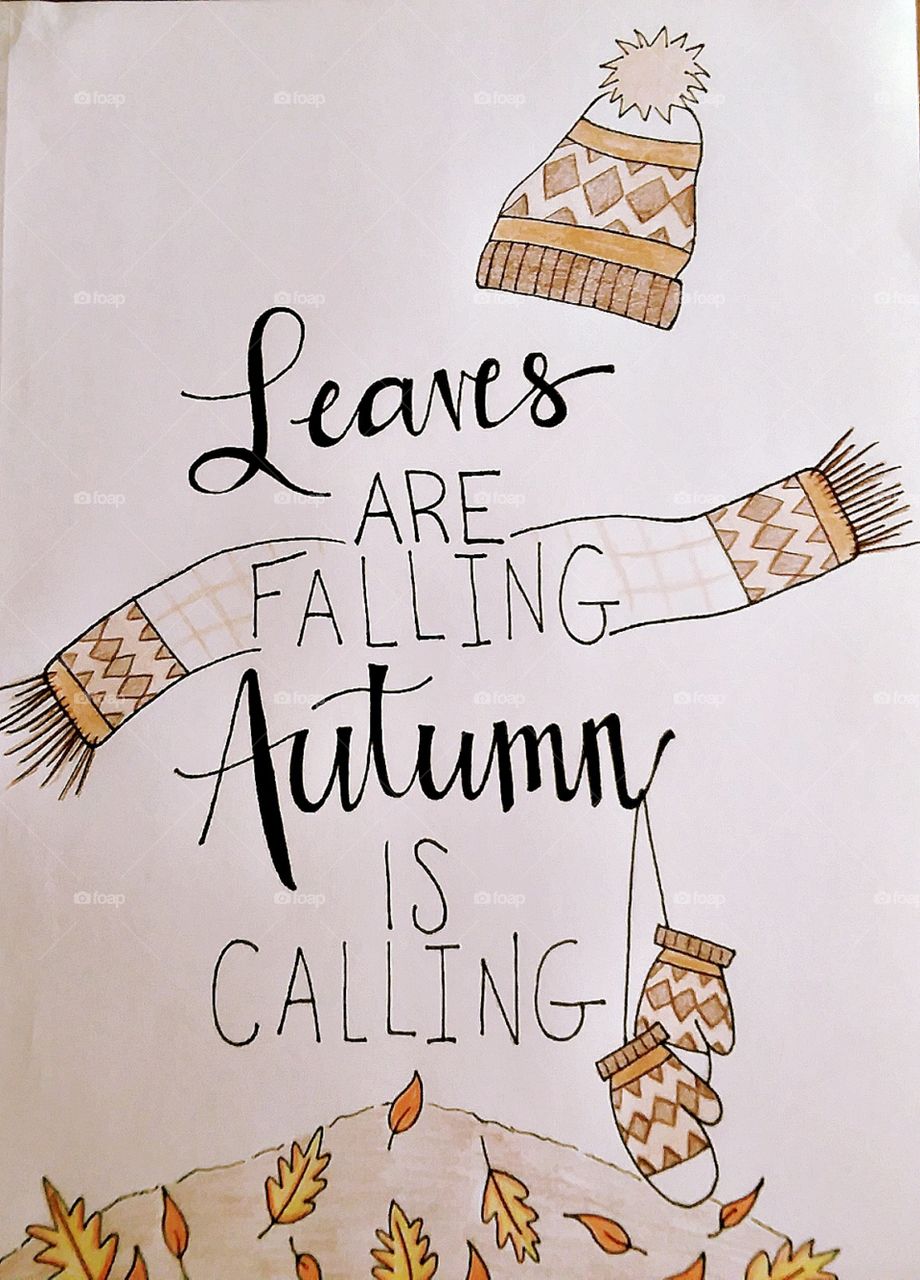 Leaves
ARE
FALLING
Autumn
IS
CALLING
foap